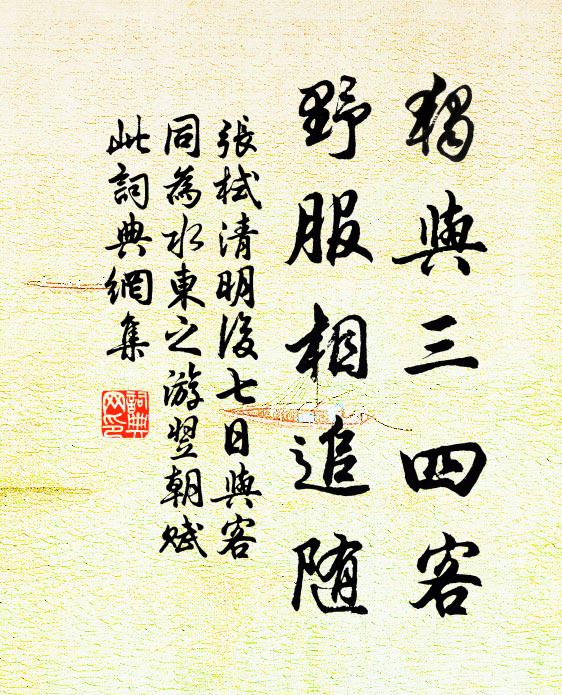 獨與三四客
野服相追随
張栻清明後七日與客
同為水東之游翌朝賦
此詞典網集
詞典
网印